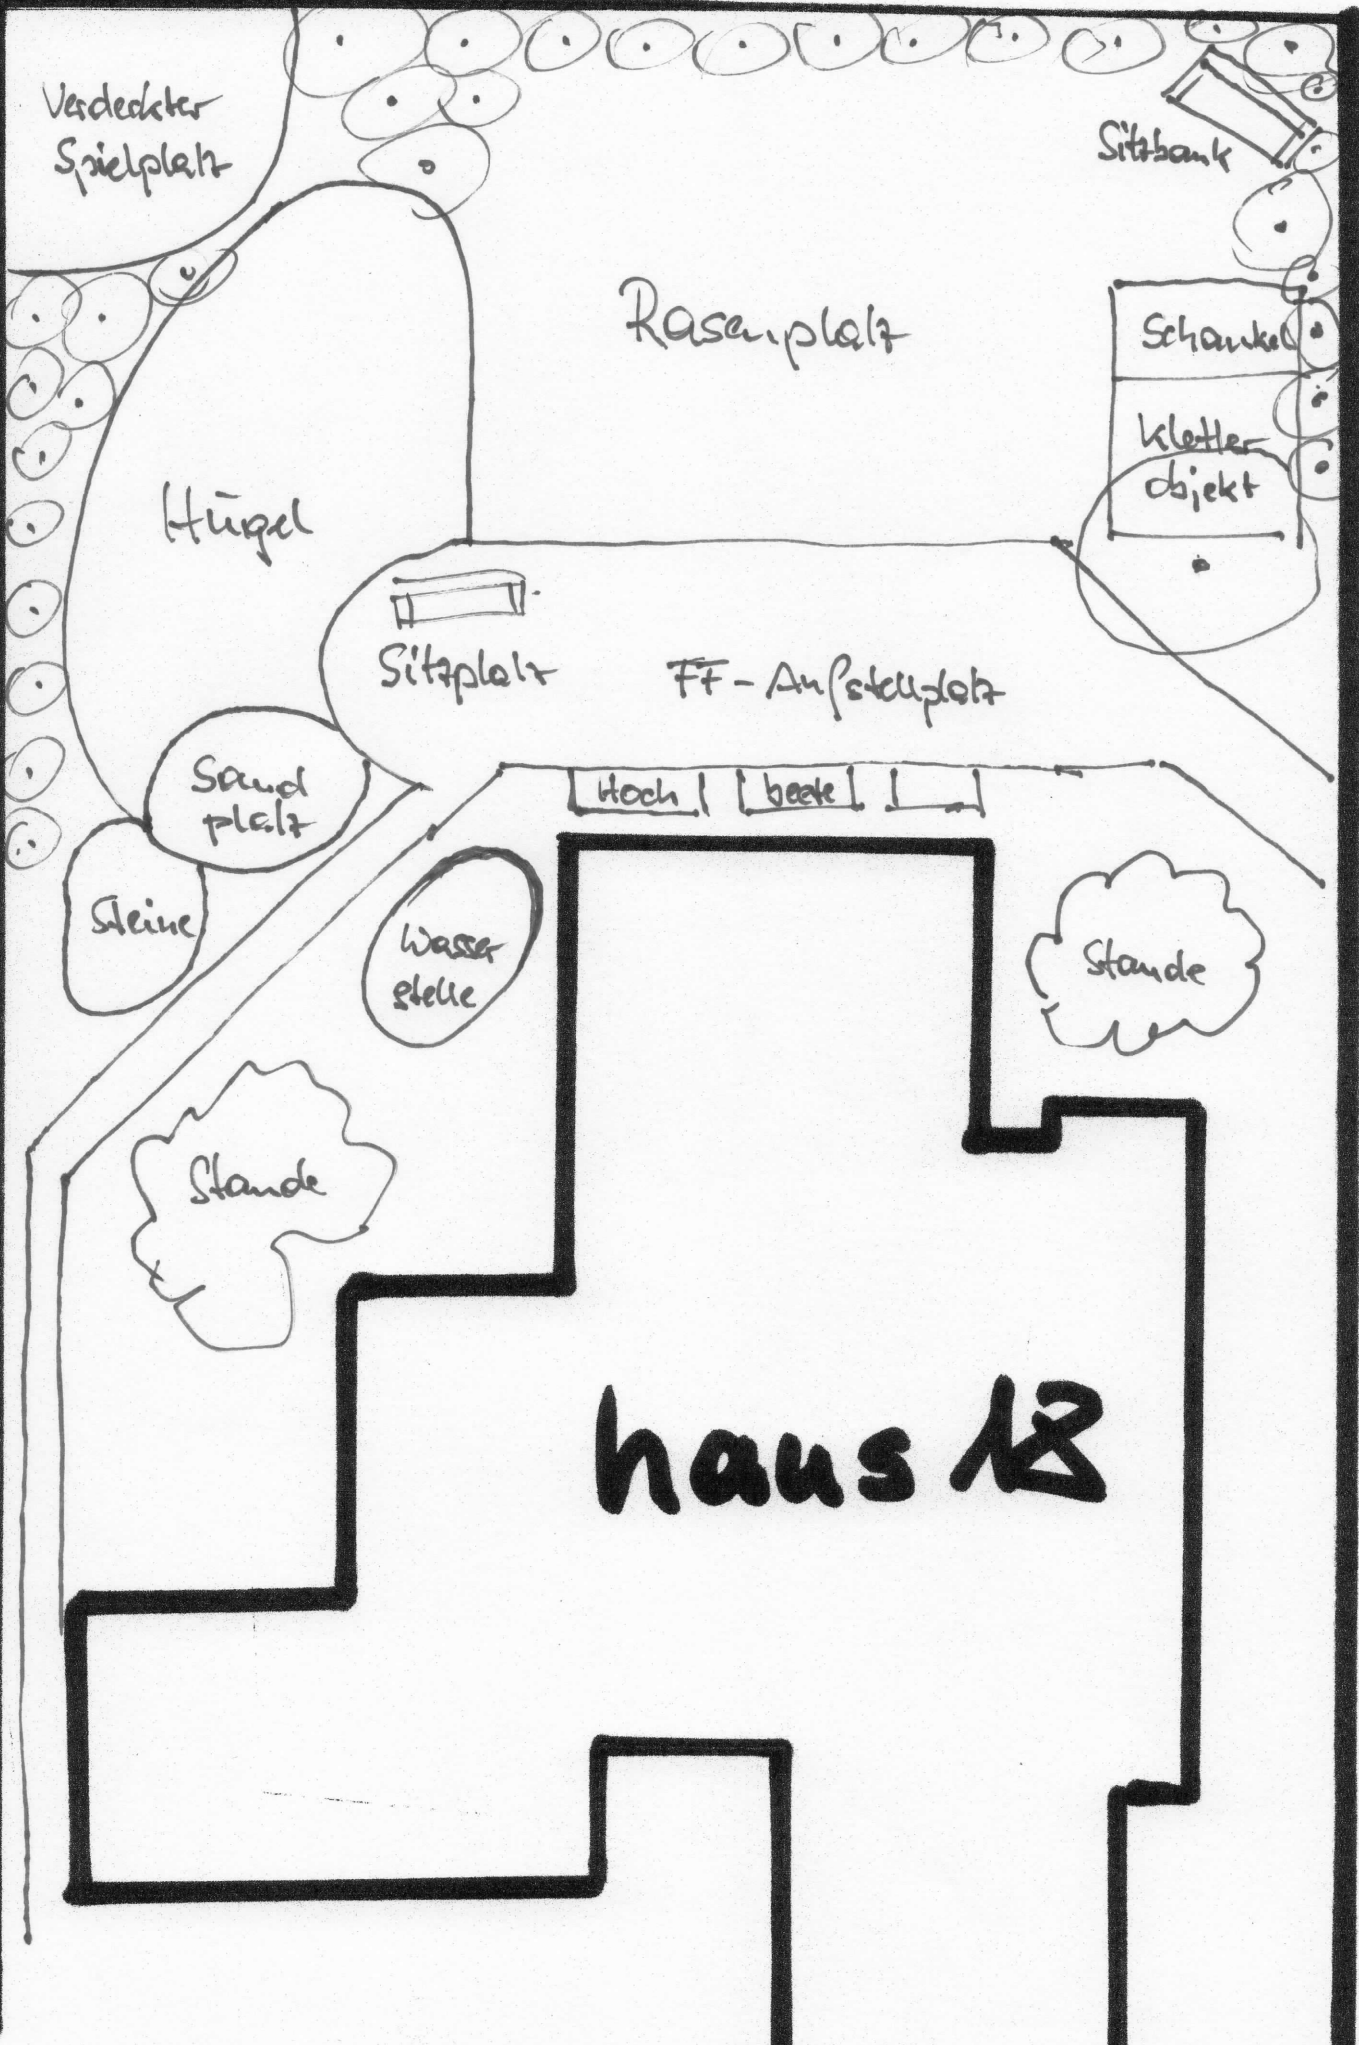 Verdeckter
Spielplatz
Sitzbank
Rasenplatz
Schaukel
Kletter
objekt
Hügel
Sitzplatz
FF-Aufstellplatz
Sand
platz
Hoch
beete
Steine
Wasser
stelle
Staude
Staude
haus 18